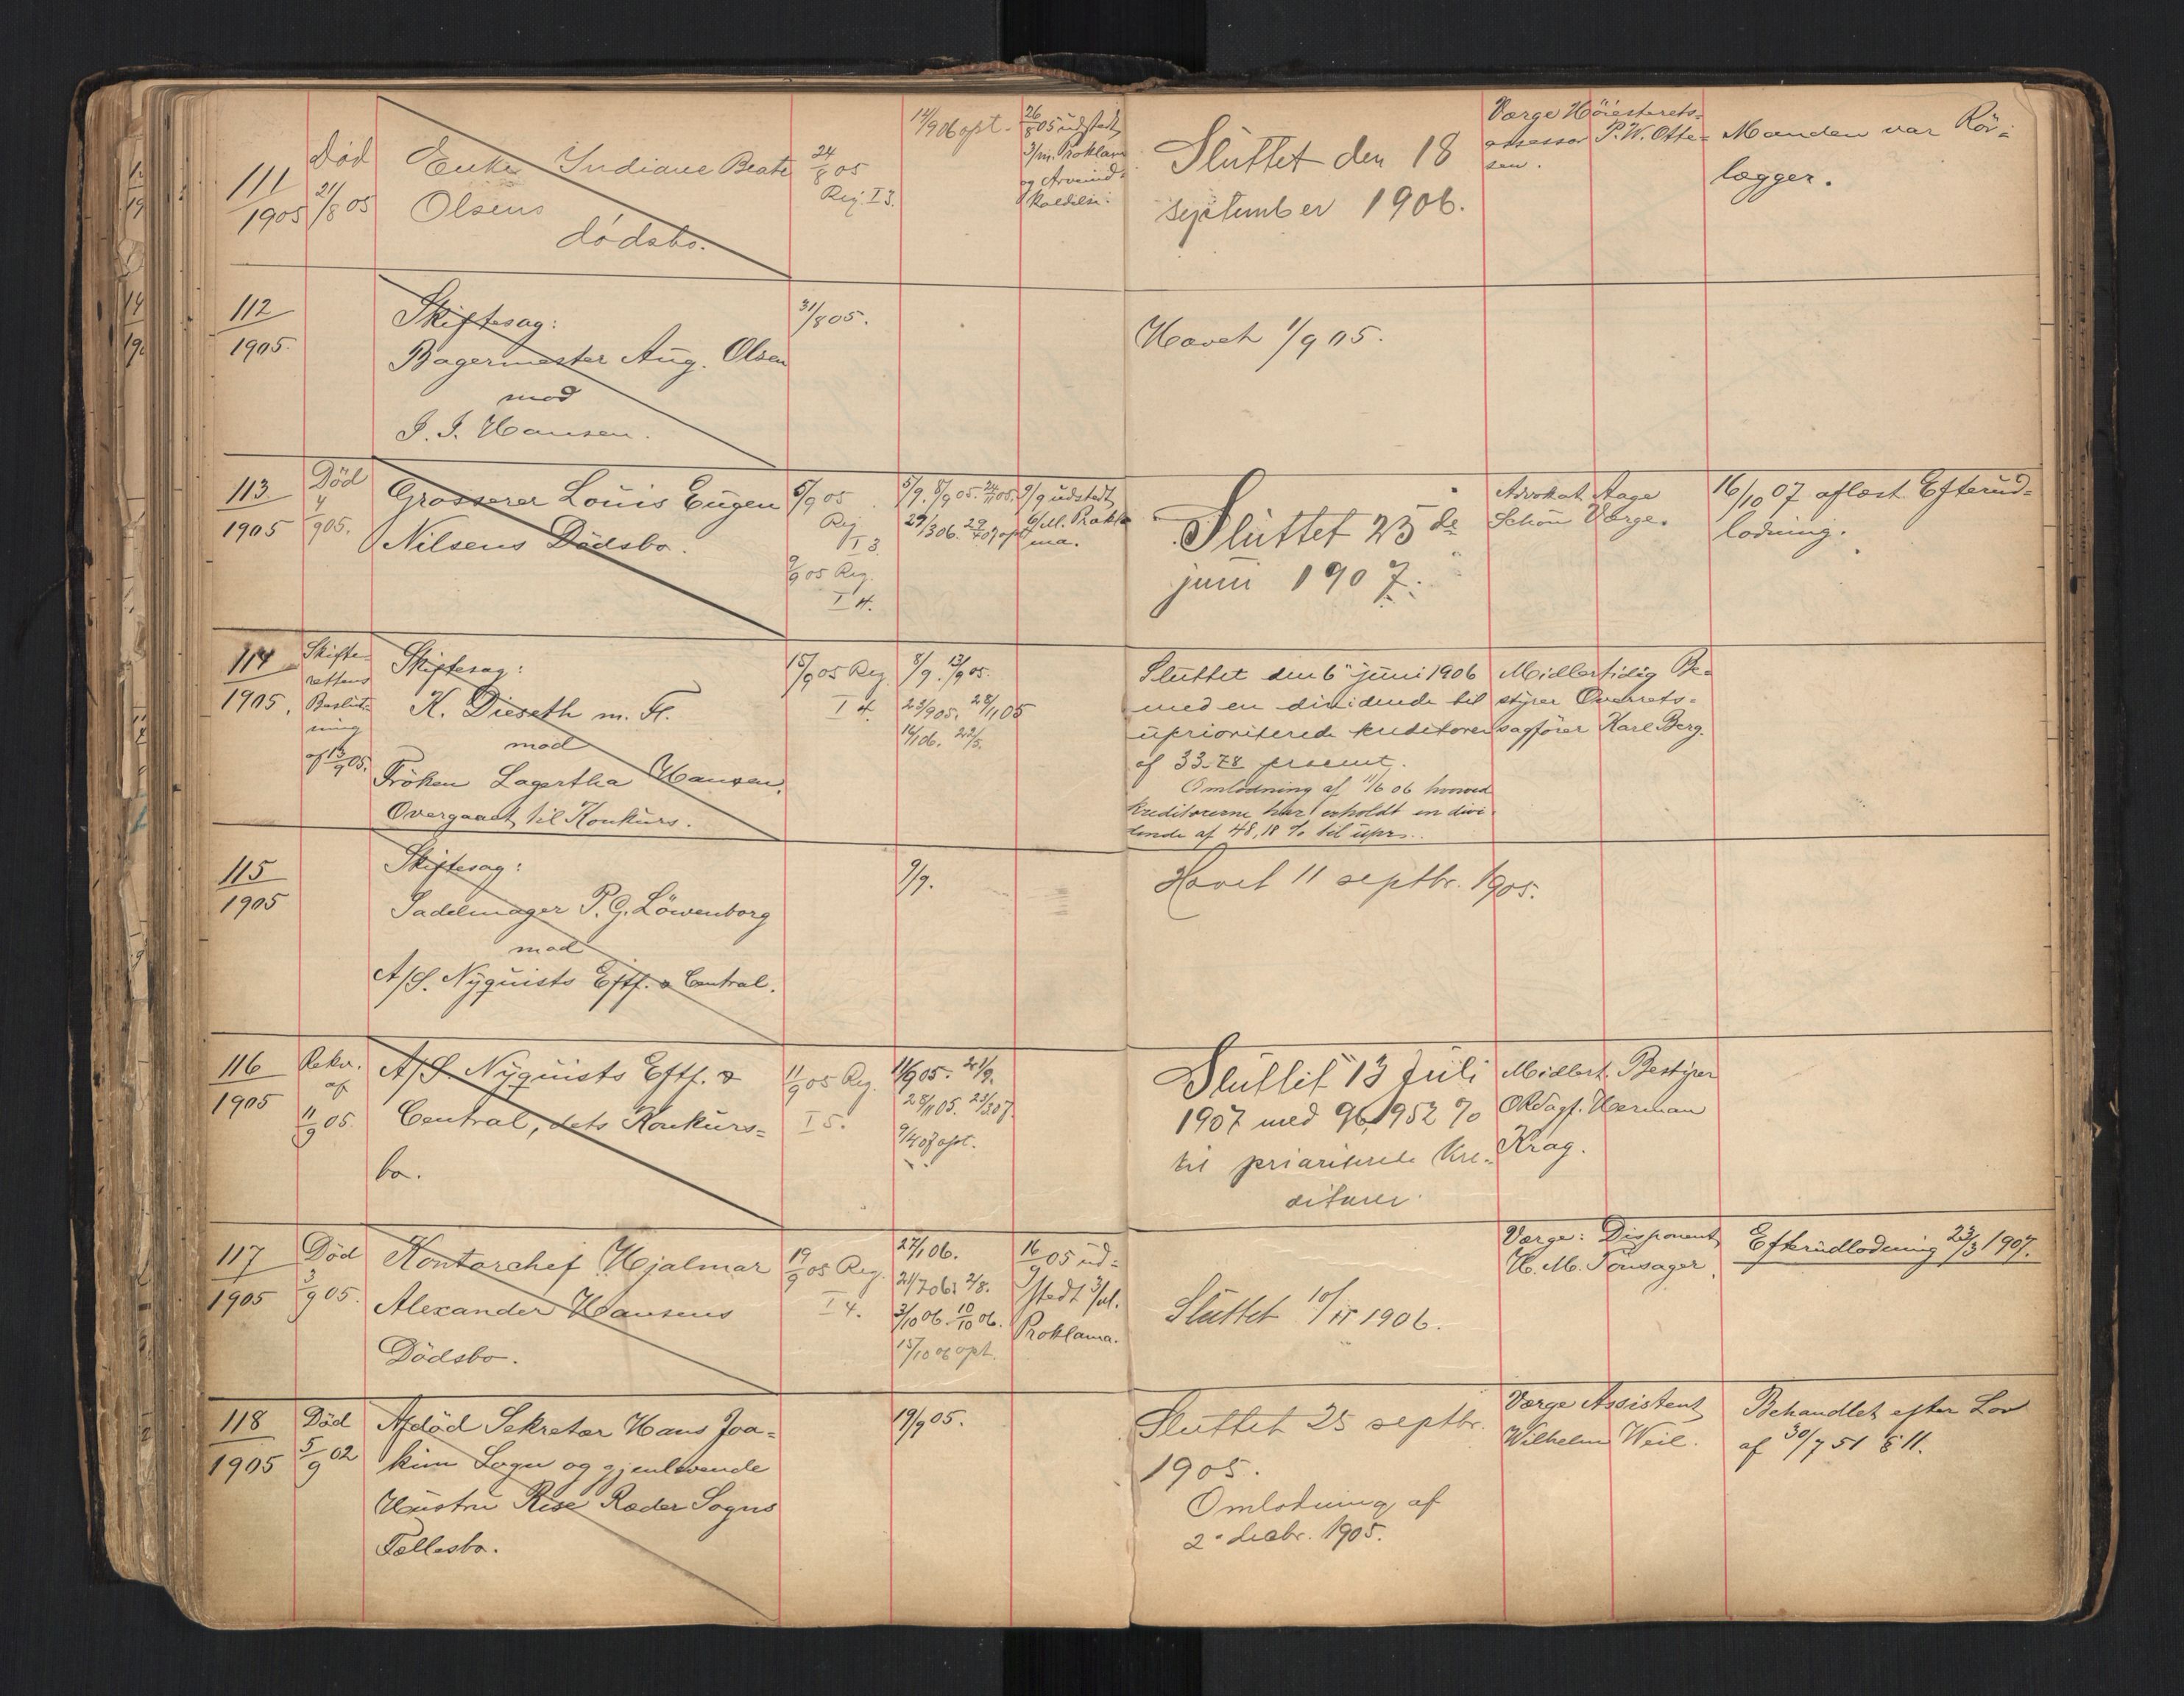 111
1905
Död
21/8 05
Enke Indiane Beate
Olsens
dödsbo.
24/8 05
Reg. I 3.
14/9 06 opt.
26/8 05 udstedt
3/m. Proklama
og Arveind-
kaldelse.
Sluttet den 18
september 1906.
Værge Höiesterets-
assessor P. W. Otte-
sen.
Manden var Rör-
lægger.
112
1905.
Skiftesag:
Bagermester Aug. Olsen
mod
J. J. Hansen.
31/8 05.
Hævet 1/9 05.
113
1905
Död
4/9 05.
Grosserer Louis Eugen
Nilsens Dödsbo.
5/9 05
Reg
I 3.
9/9 05 Reg.
I 4.
5/9. 8/9 05. 24/11 05.
29/3 06.
9/9 udstedt
6/M. Prokla-
ma.
Sluttet 25 de
juni 1907.
Advokat Aage
Schön Værge.
16/10 07 aflæst Efterud-
lodning.
114
1905.
Skifte-
rettens
Beslut-
ning
af 13/9 05.
Skiftesag:
K. Dieseth m. Fl.
mod
Fröken Lagertha Hansen.
Overgaaet til Konkurs.
15/9 05 Reg.
I 4.
8/9. 13/9 05.
23/9 05. 28/11 05
16/1 06. 22/5.
Sluttet den 6te juni 1906
med en dividende til
upriviterede kreditorer
af 33.78 procent.
Omlodning af 11/6 06 hvorved
kreditorerne har erholdt en divi-
dende af 48,18 % til upr.
Midlertidig Be-
styrer Overrets-
sagförer Karl Berg.
115
1905
Skiftesag:
Sadelmager P. G. Löwenborg
mod
A/S. Nyquists Eftf. & Central.
9/9.
Hævet 11 septbr. 1905.
116
1905
Rekv.
af
11/9 05.
A/S. Nyquists Eftf. &
Central, dets Konkurs-
bo.
11/9 05 Reg.
I 5.
11/9 05. 21/9.
28/11 05. 23/3 07.
9/4 07 opt.
Sluttet 13 Juli
1907 med 96,1952 %
til prioriterede kre-
ditorer.
Midlert. Bestyrer
ORsagf. Herman
Krag.
117
1905
Död
3/9 05.
Kontorchef Hjalmar
Alexander Hansens
Dödsbo.
19/9 05 Reg.
I 4.
27/1 06.
21/7 06. 2/8.
3/10 06. 10/10 06.
15/10 06 opt.
16/9 05 ud-
stedt 3/M.
Proklama.
Sluttet 10/11 1906.
Værge: Disponent
H. M. Tonsager.
Efterudlodning 23/3 1907.
118
1905
Död
5/9 02
Afdöd Sekretær Hans Joa-
kim Sogn og gjenlevende
Hustru Rise Ræder Sogns
Fællesbo.
19/9 05.
Sluttet 25 septbr.
1905.
Omlodning af
2. decbr. 1905.
Værge Assistent
Wilhelm Weil.
Behandlet efter Lov
af 30/7 51 § 11.